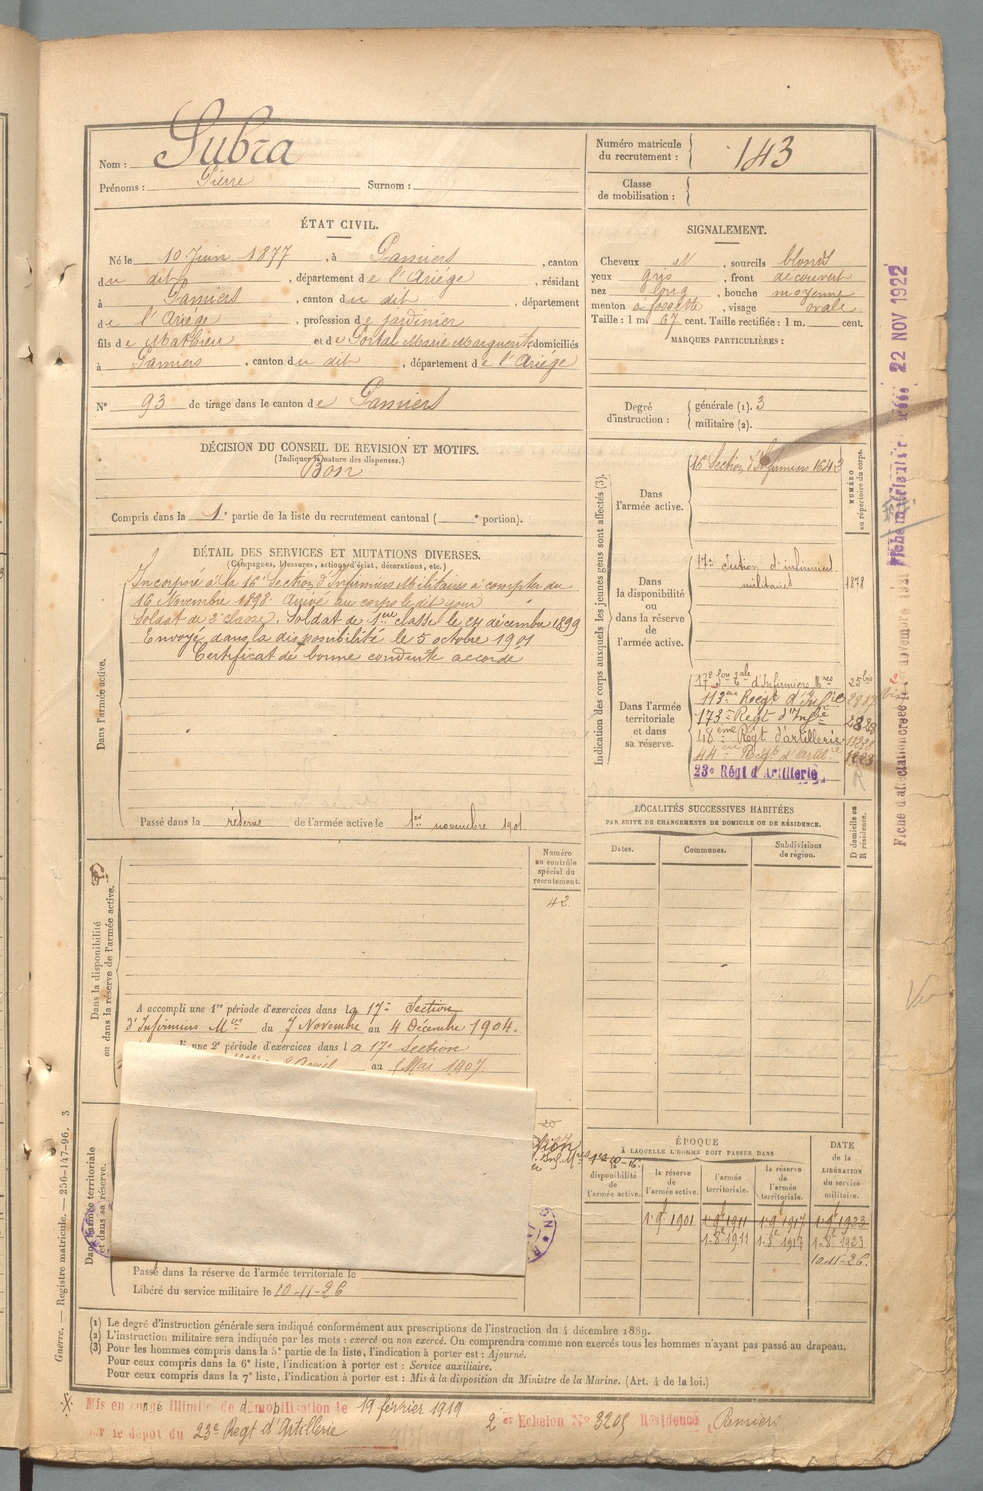 Nom : Subra
Prénoms : Pierre Surnom :
Numéro matricule
du recrutement : 143
Classe
de mobilisation :
ÉTAT CIVIL.
Né le 10 Juin 1877, à Pamiers, canton
du dit, département de l'Ariége, résidant
à Pamiers, canton du dit, département
de l'Ariége, profession de jardinier
fils de Mathieu et de Portal Marie Marguerite, domiciliés
à Pamiers, canton du dit, département de l'Ariége
N° 93 de tirage dans le canton de Pamiers
SIGNALEMENT.
Cheveux N, sourcils blonds
yeux gris, front découvert
nez long, bouche moyenne
menton à fossette, visage ovale
Taille : 1 m. 67 cent. Taille rectifiée : 1 m. cent.
MARQUES PARTICULIÈRES :
Degré
d'instruction :
générale (1). 3
militaire (2).
DÉCISION DU CONSEIL DE REVISION ET MOTIFS.
(Indiquer la nature des dispenses.)
Bon
Compris dans la 1e partie de la liste du recrutement cantonal ( e portion).
DÉTAIL DES SERVICES ET MUTATIONS DIVERSES.
(Campagnes, blessures, actions d'éclat, décorations, etc.)
Dans l'armée active.
Incorporé à la 16e Section d'Infirmiers Militaires à compter du
16 Novembre 1898. Arrivé au corps le dit jour
Soldat de 2e classe. Soldat de 1ère classe le 24 décembre 1899
Envoyé dans la disponibilité le 5 octobre 1901
Certificat de bonne conduite accordé
Passé dans la réserve de l'armée active le 1er novembre 1901
Indication des corps auxquels les jeunes gens sont affectés (3).
NUMÉRO
au répertoire du corps.
Dans
l'armée active.
16e Section d'Infirmiers 1643
Dans
la disponibilité
ou
dans la réserve
de
l'armée active.
17e Section d'infirmiers
militaires 1878
Dans l'armée
territoriale
et dans
sa réserve.
17e Son Tale d'Infirmiers Mres 25bis
113me Regt d'Infie
173e Regt d'Infie 2828
48ème Régt d'artillerie
44me Regt d'Artil.
23e Régt d'Artillerie
Fiche matricule 22 NOV 1922
Fiche d'affectation créée le novembre
LOCALITÉS SUCCESSIVES HABITÉES
PAR SUITE DE CHANGEMENTS DE DOMICILE OU DE RÉSIDENCE.
Dates.
Communes.
Subdivisions
de région.
D domicile ou
R résidence.
Numéro
au contrôle
spécial du
recrutement.
42
Dans la disponibilité
ou dans la réserve de l'armée active.
A accompli une 1re période d'exercices dans la 17e Section
d'Infirmiers Mres du 7 Novembre au 4 Décembre 1904.
une 2e période d'exercices dans la 17e Section
Avril au 1 Mai 1907.
Dans l'armée territoriale
et dans sa réserve.
Passé dans la réserve de l'armée territoriale le
Libéré du service militaire le 10-11-26
ÉPOQUE
À LAQUELLE L'HOMME DOIT PASSER DANS
la
disponibilité
de
l'armée active.
la réserve
de
l'armée active.
l'armée
territoriale.
la réserve
de
l'armée
territoriale.
DATE
de la
LIBÉRATION
du service
militaire.
1.9e 1901 1.9e 1911 1.9e 1917 1.9e 1923
1-8e 1911 1-8e 1917 1-8e 1923
10-11-26.
(1) Le degré d'instruction générale sera indiqué conformément aux prescriptions de l'instruction du 4 décembre 1889.
(2) L'instruction militaire sera indiquée par les mots : exercé ou non exercé. On comprendra comme non exercés tous les hommes n'ayant pas passé au drapeau.
(3) Pour les hommes compris dans la 5e partie de la liste, l'indication à porter est : Ajourné.
Pour ceux compris dans la 6e liste, l'indication à porter est : Service auxiliaire.
Pour ceux compris dans la 7e liste, l'indication à porter est : Mis à la disposition du Ministre de la Marine. (Art. 4 de la loi.)
Guerre. — Registre matricule. — 256-147-96. 3
Mis en congé illimité de démobilisation le 19 février 1919 2e Echelon No 3205 Résidence Pamiers
par le dépôt du 23e Régt d'Artillerie